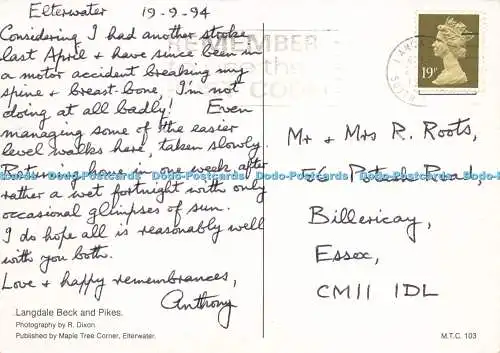 Elterwater 19-9-94
Considering I had another stroke
last April & have since been in
a motor accident breaking my
spine & breast-bone, I'm not
doing at all badly! Even
managing some of the easier
level walks here, taken slowly.
Returning home in one week after
rather a wet fortnight with only
occasional glimpses of sun.
I do hope all is reasonably well
with you both.
Love & happy remembrances,
Anthony
Langdale Beck and Pikes.
Photography by R. Dixon
Published by Maple Tree Corner, Elterwater.
REMEMBER
19P
Mr & Mrs R. Roots,
56 Road,
Billericay,
Essex,
CM11 1DL
M.T.C. 103
Dodo-Postcards Dodo-Postcards Dodo-Postcards Dodo-Postcards Dodo-Postcards Dodo-Postcards